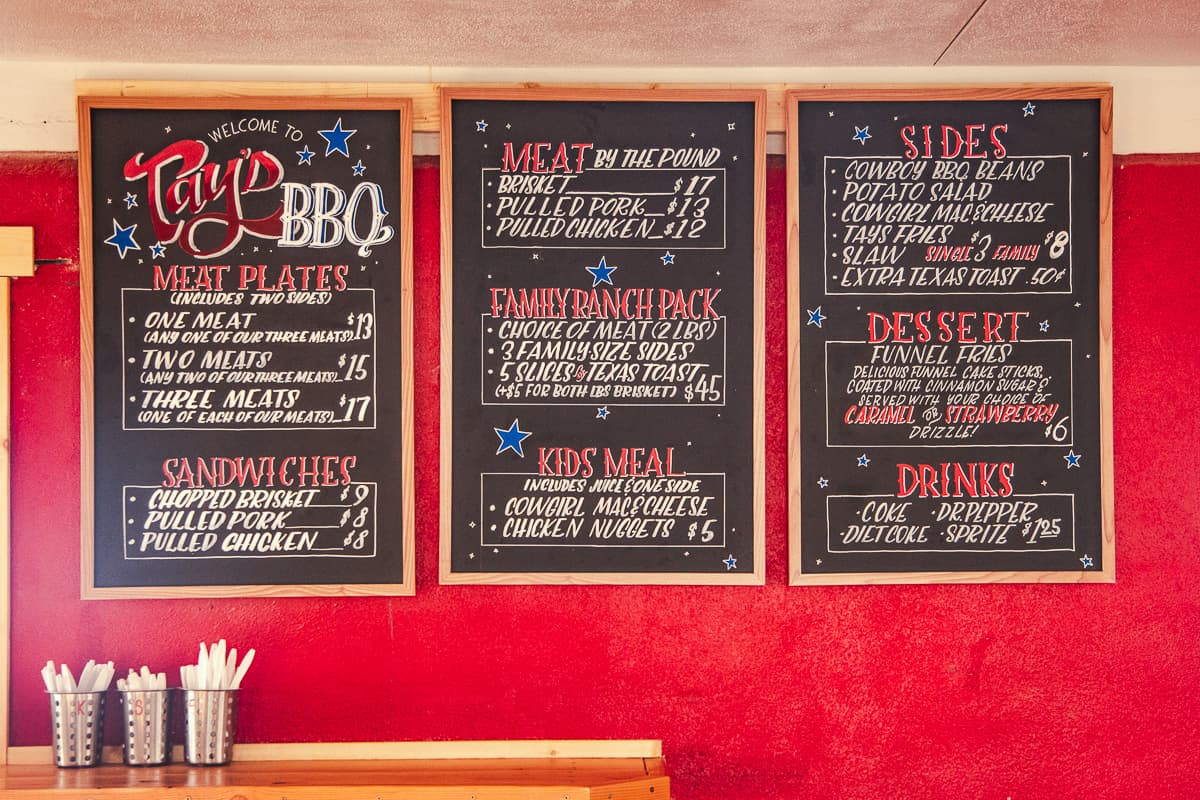 WELCOME TO
Tay's
BBQ
MEAT PLATES
(INCLUDES TWO SIDES)
• ONE MEAT
(ANY ONE OF OUR THREE MEATS) $13
• TWO MEATS
(ANY TWO OF OUR THREE MEATS) $15
• THREE MEATS
(ONE OF EACH OF OUR MEATS) $17
SANDWICHES
• CHOPPED BRISKET $9
• PULLED PORK $8
• PULLED CHICKEN $8
MEAT BY THE POUND
• BRISKET $17
• PULLED PORK $13
• PULLED CHICKEN $12
FAMILY RANCH PACK
• CHOICE OF MEAT (2 LBS)
• 3 FAMILY SIZE SIDES
• 5 SLICES TEXAS TOAST
(+$5 FOR BOTH LBS BRISKET) $45
KIDS MEAL
INCLUDES JUICE & ONE SIDE
• COWGIRL MAC & CHEESE
• CHICKEN NUGGETS $5
SIDES
• COWBOY BBQ BEANS
• POTATO SALAD
• COWGIRL MAC & CHEESE
• TAYS FRIES
• SLAW SINGLE $3 FAMILY $8
• EXTRA TEXAS TOAST .50¢
DESSERT
FUNNEL FRIES
DELICIOUS FUNNEL CAKE STICKS,
COATED WITH CINNAMON SUGAR &
SERVED WITH YOUR CHOICE OF
CARAMEL OR STRAWBERRY
DRIZZLE! $6
DRINKS
• COKE • DR. PEPPER
• DIET COKE • SPRITE $1.25
K
S